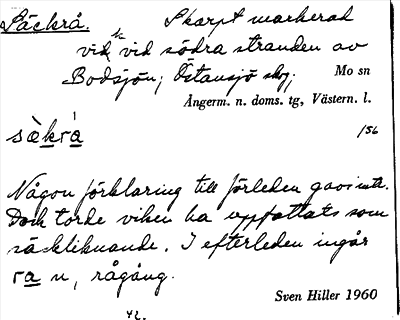 Säckrå. Skarpt markerad
vik vid södra stranden av
Bodsjön; Östansjö skog; Mo sn
Ångerm. n. doms. tg, Västern. l.
sàkrá 156
Någon förklaring till förleden gavs inte.
Dock torde viken ha uppfattats som
säckliknande. I efterleden ingår
ra n, rågång.
Sven Hiller 1960
42.